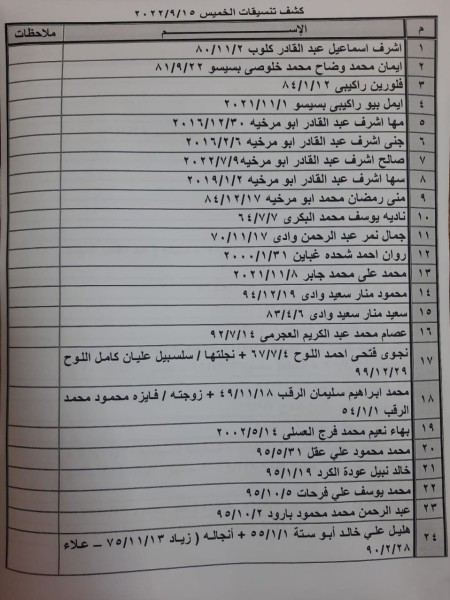 كشف تنسيقات الخميس ٢٠٢٢/٩/١٥
م الإســـم ملاحظات
١ اشرف اسماعيل عبد القادر كلوب ٨٠/١١/٢
٢ ايمان محمد وضاح محمد خلوصى بسيسو ٨١/٩/٢٢
٣ فلورين راكيبى ٨٤/١/١٢
٤ ايمل بيو راكيبى بسيسو ٢٠٢١/١١/١
٥ مها اشرف عبد القادر ابو مرخيه ٢٠١٦/١٢/٣٠
٦ جنى اشرف عبد القادر ابو مرخيه ٢٠١٦/٢/٦
٧ صالح اشرف عبد القادر ابو مرخيه٢٠٢٢/٧/٩
٨ سها اشرف عبد القادر ابو مرخيه ٢٠١٩/١/٢
٩ منى رمضان محمد ابو مرخيه ٨٤/١٢/١٧
١٠ ناديه يوسف محمد البكرى ٦٤/٧/٧
١١ جمال نمر عبد الرحمن وادى ٧٠/١١/١٧
١٢ روان احمد شحده غباين ٢٠٠٠/١/٣١
١٣ محمد على محمد جابر ٢٠٢١/١١/٨
١٤ محمود منار سعيد وادى ٩٤/١٢/١٩
١٥ سعيد منار سعيد وادى ٨٣/٤/٦
١٦ عصام محمد عبد الكريم العجرمى ٩٢/٧/١٤
١٧ نجوى فتحى احمد اللوح ٦٧/٧/٤ + نجلتها / سلسبيل عليان كامل اللوح
٩٩/١٢/٢٩
١٨ محمد ابراهيم سليمان الرقب ٤٩/١١/١٨ + زوجته / فايزه محمود محمد
الرقب ٥٤/١/١
١٩ بهاء نعيم محمد فرج العسلى ٢٠٠٢/٥/١٤
٢٠ محمد محمود علي عقل ٩٥/٥/٣١
٢١ خالد نبيل عودة الكرد ٩٥/١/١٩
٢٢ محمد يوسف علي فرحات ٩٥/١٠/٥
٢٣ عبد الرحمن محمد محمود بارود ٩٥/١٠/٢
٢٤ هليل علي خالد أبو ستة ٥٥/١/١ + أنجاله ( زياد ٧٥/١١/١٣ – علاء
٩٠/٢/٢٨